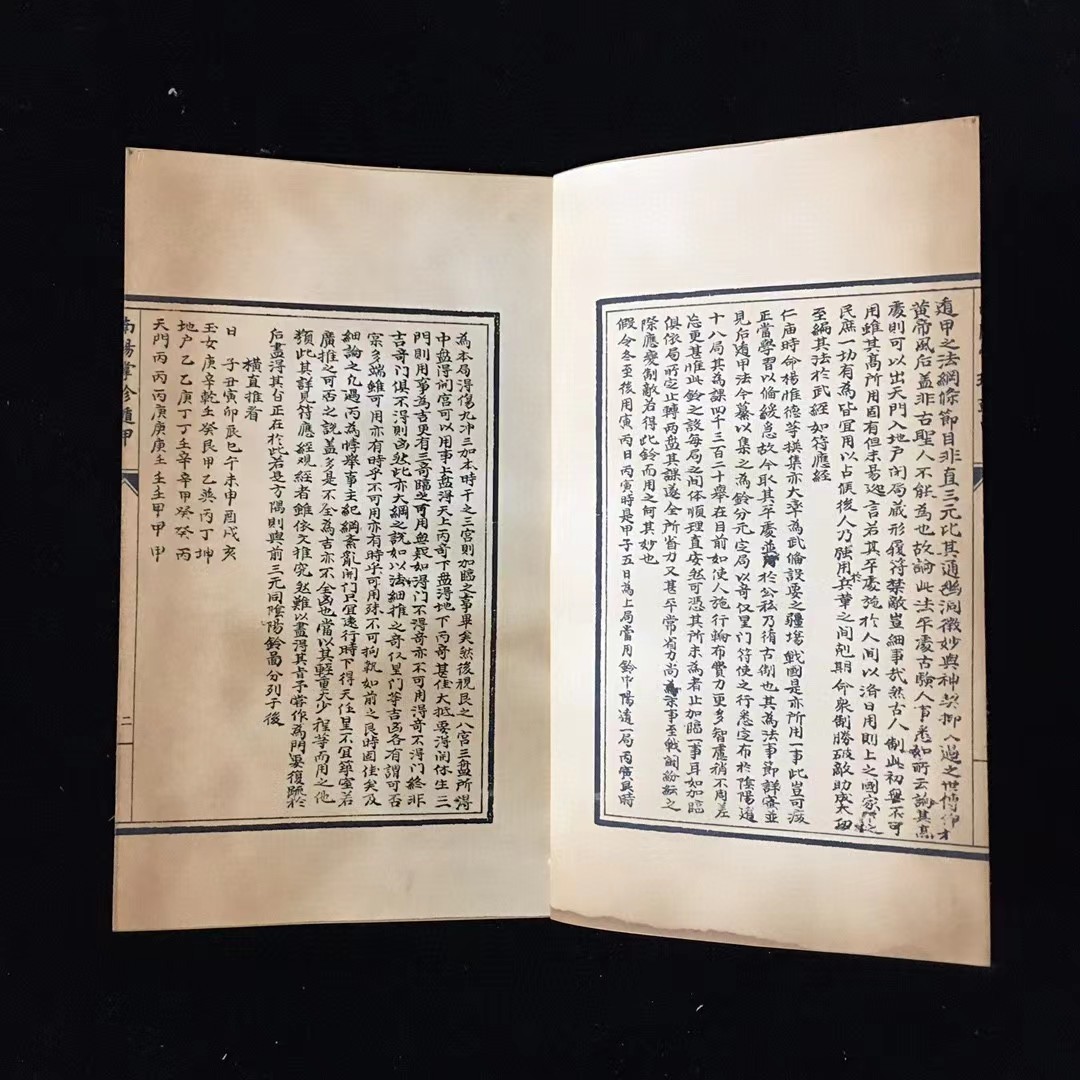 遁甲之法綱條節目非直三元比其通幽洞微妙與神契抑人過之世傳仰才
黄帝風后盖非古聖人不能為也故論此法平處古驗人事悉如所云論其髙
處則可以出天門入地戶閉局藏形履符禁敵豈細事哉然古人制此初無不可
用雖其髙所用固有但未易迦言若其平處施於人間以洛日用則上之國家
民庶一切有為皆宜用以占便後人乃强用兵革之间剋期命衆制勝破敵助成大功
至編其法於武經如符應經
仁庙時命楊惟德等撰集亦大率為武俻設耍之疆塲戰國是亦所用一事此豈可癈
正當學習以俻緩急故今取其平處並於公私乃循古術也其為法事節詳審並
見后遁甲法今纂以集之為鈐分元定局以奇仪星门符使之行悉定布於陰陽遁
十八局其為課四千三百二十舉在目前如使人施行輪布費力更多智慮稍不周差
忘更甚惟此鈐之設每局之间体順理直安然可憑其所未為者止加臨一事耳如加臨
俱依局所定止轉两盘其課遂全所省力又甚平常省力尚為京事至戰鬭紛紜之
際應變制敵若得此鈐而用之何其妙也
假令冬至後用寅丙日丙寅時是甲子五日為上局當用鈐中陽遁一局丙寅具時
為本局得傷九冲三加本時干之三宫則加臨之事畢矣然後視民之八宫三盘所得
中盘得闲宫可以用事上盘淂天上丙奇下盘淂地下丙奇甚佳大抵要淂闲休生三
門則用事為吉更有三奇臨之可用無疑如淂門不淂奇亦可用淂奇不淂門終非
吉奇门俱不淂則凶然此亦大綱之說如以法細推之奇仪星门等吉凶各有謂可否
宗多端雖可用亦有時乎不可用亦有時乎可用殊不可拘執如前之艮時固佳矣及
細論之九遇丙為悖舉事主紀綱紊亂闲门只宜速行時下得天任星不宜築室若
廣推之可否之說盖多是不全為吉亦不全凶也當以其輕重大少程等而用之他
類此其詳見符應經观經者雖依文推究然難以盡得其旨予常作為門戛復踪於
后盡得其旨正在於此若是方隅則與前三元同陰陽鈐啚分列于後
橫直推看
日 子丑寅卯辰巳午未申酉戌亥
玉女庚辛乾壬癸艮甲乙巽丙丁坤
地戶乙乙庚丁丁壬辛辛甲癸癸丙
天門丙丙丙庚庚庚壬壬壬甲甲甲
南陽掌珍遁甲
二